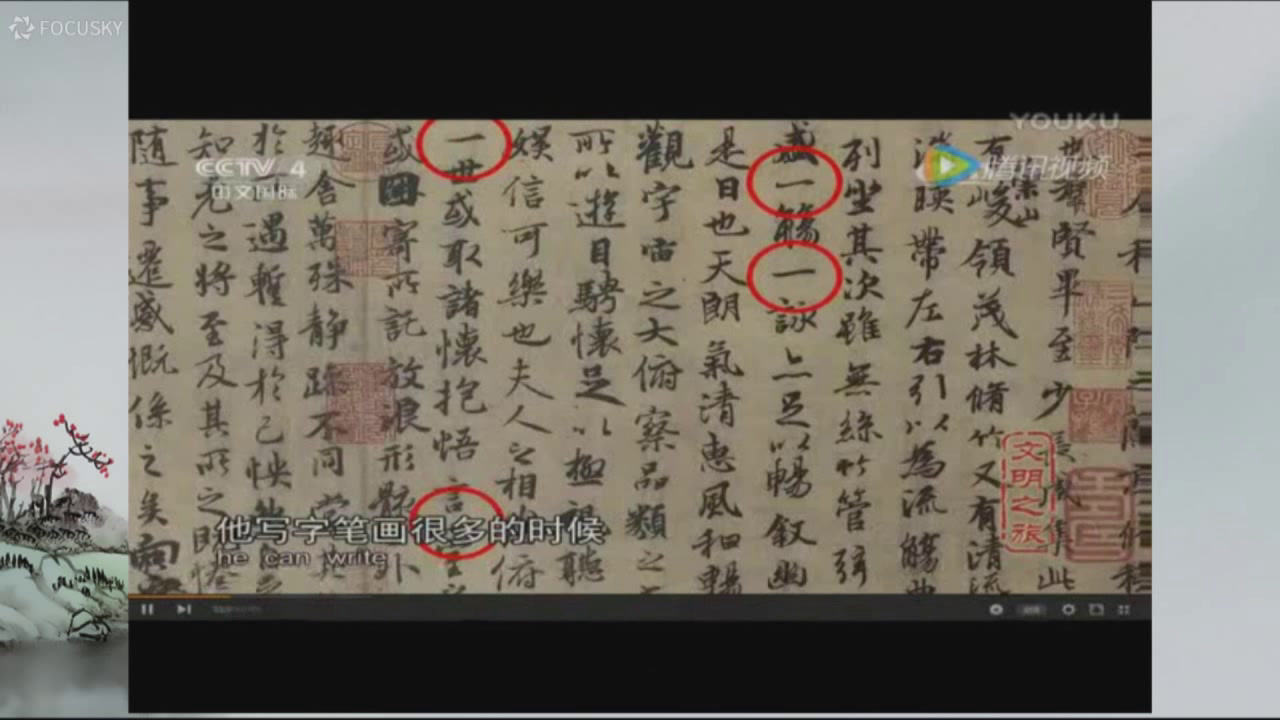 FOCUSKY
YOUKU
腾讯视频
CCTV 4
中文国际
也羣賢畢至少長咸集此
有崇山峻領茂林脩竹又有清流
激映帶左右引以為流觴曲
列坐其次雖無絲竹管弦
盛一觴一詠亦足以暢叙幽
是日也天朗氣清惠風和暢
觀宇宙之大俯察品類之
所以遊目騁懷足以極視聽
娛信可樂也夫人之相與俯
一世或取諸懷抱悟言室
或因寄所託放浪形骸外
趣舍萬殊靜躁不同當其
於所遇蹔得於己怏然
知老之將至及其所之既惓
隨事遷感慨係之矣向
文明之旅
他写字笔画很多的时候
he can write